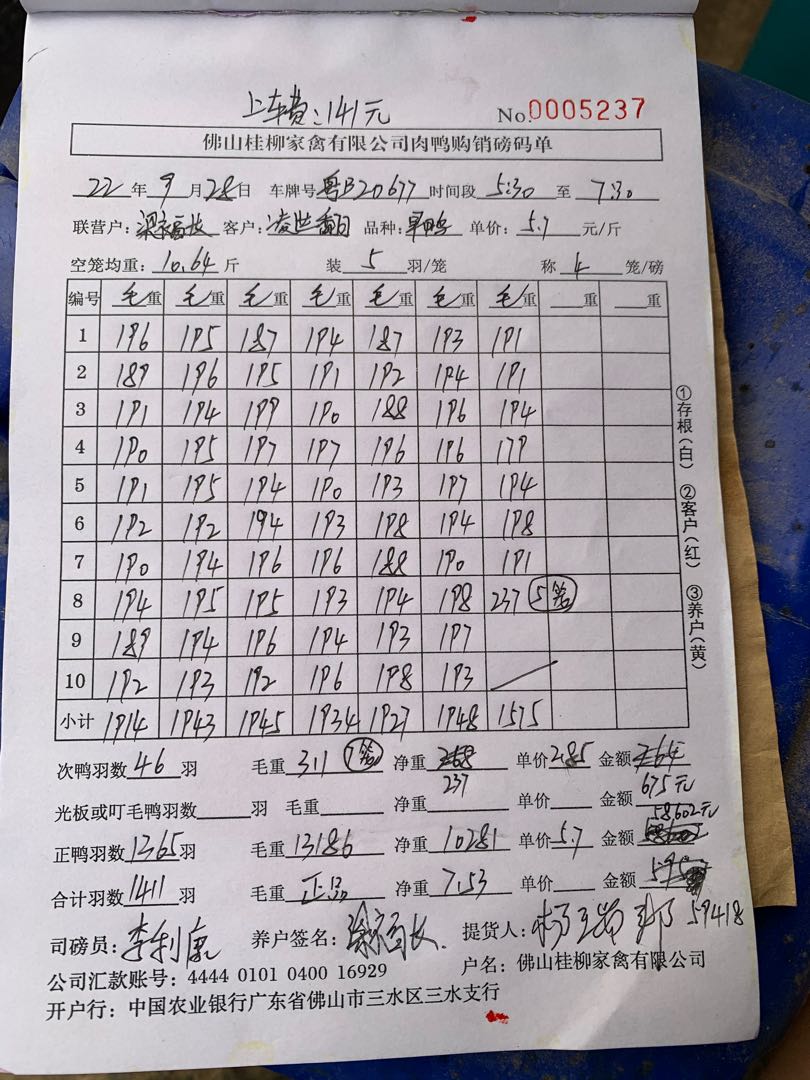 上车费:141元
No.0005237
佛山桂柳家禽有限公司肉鸭购销磅码单
22年9月28日 车牌号粤B20677 时间段5:30至7:30
联营户: 客户: 品种:旱鸭 单价:5.7元/斤
空笼均重:10.64斤 装5羽/笼 称4笼/磅
编号 毛重 毛重 毛重 毛重 毛重 毛重 毛重 重 重
1 196 195 187 194 187 193 191
2 189 196 195 191 192 194 191
3 191 194 199 190 188 196 194
4 190 195 197 197 196 196 179
5 191 195 194 190 193 197 194
6 192 192 194 193 198 194 198
7 190 194 196 196 188 190 191
8 194 195 195 193 194 198 237 5笼
9 189 194 196 194 193 197
10 192 193 192 196 198 193
小计 1914 1943 1945 1934 1927 1948 1575
次鸭羽数46羽 毛重311 7笼 净重 237 单价2.85 金额 675元
光板或叮毛鸭羽数 羽 毛重 净重 单价 金额
正鸭羽数1365羽 毛重13186 净重10281 单价5.7 金额58602元
合计羽数1411羽 毛重正品 净重7.53 单价 金额
59418
司磅员:李利康 养户签名: 提货人:
公司汇款账号:4444 0101 0400 16929 户名:佛山桂柳家禽有限公司
开户行:中国农业银行广东省佛山市三水区三水支行
①存根(白) ②客户(红) ③养户(黄)